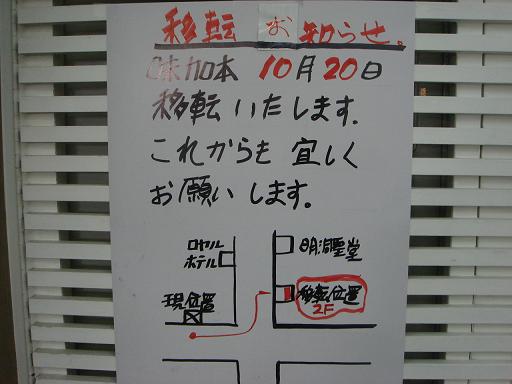 移転お知らせ。
味加本 10月20日
移転いたします.
これからも 宜しく
お願いします.
ロヤル
ホテル
明洞聖堂
現位置
移転位置
2F